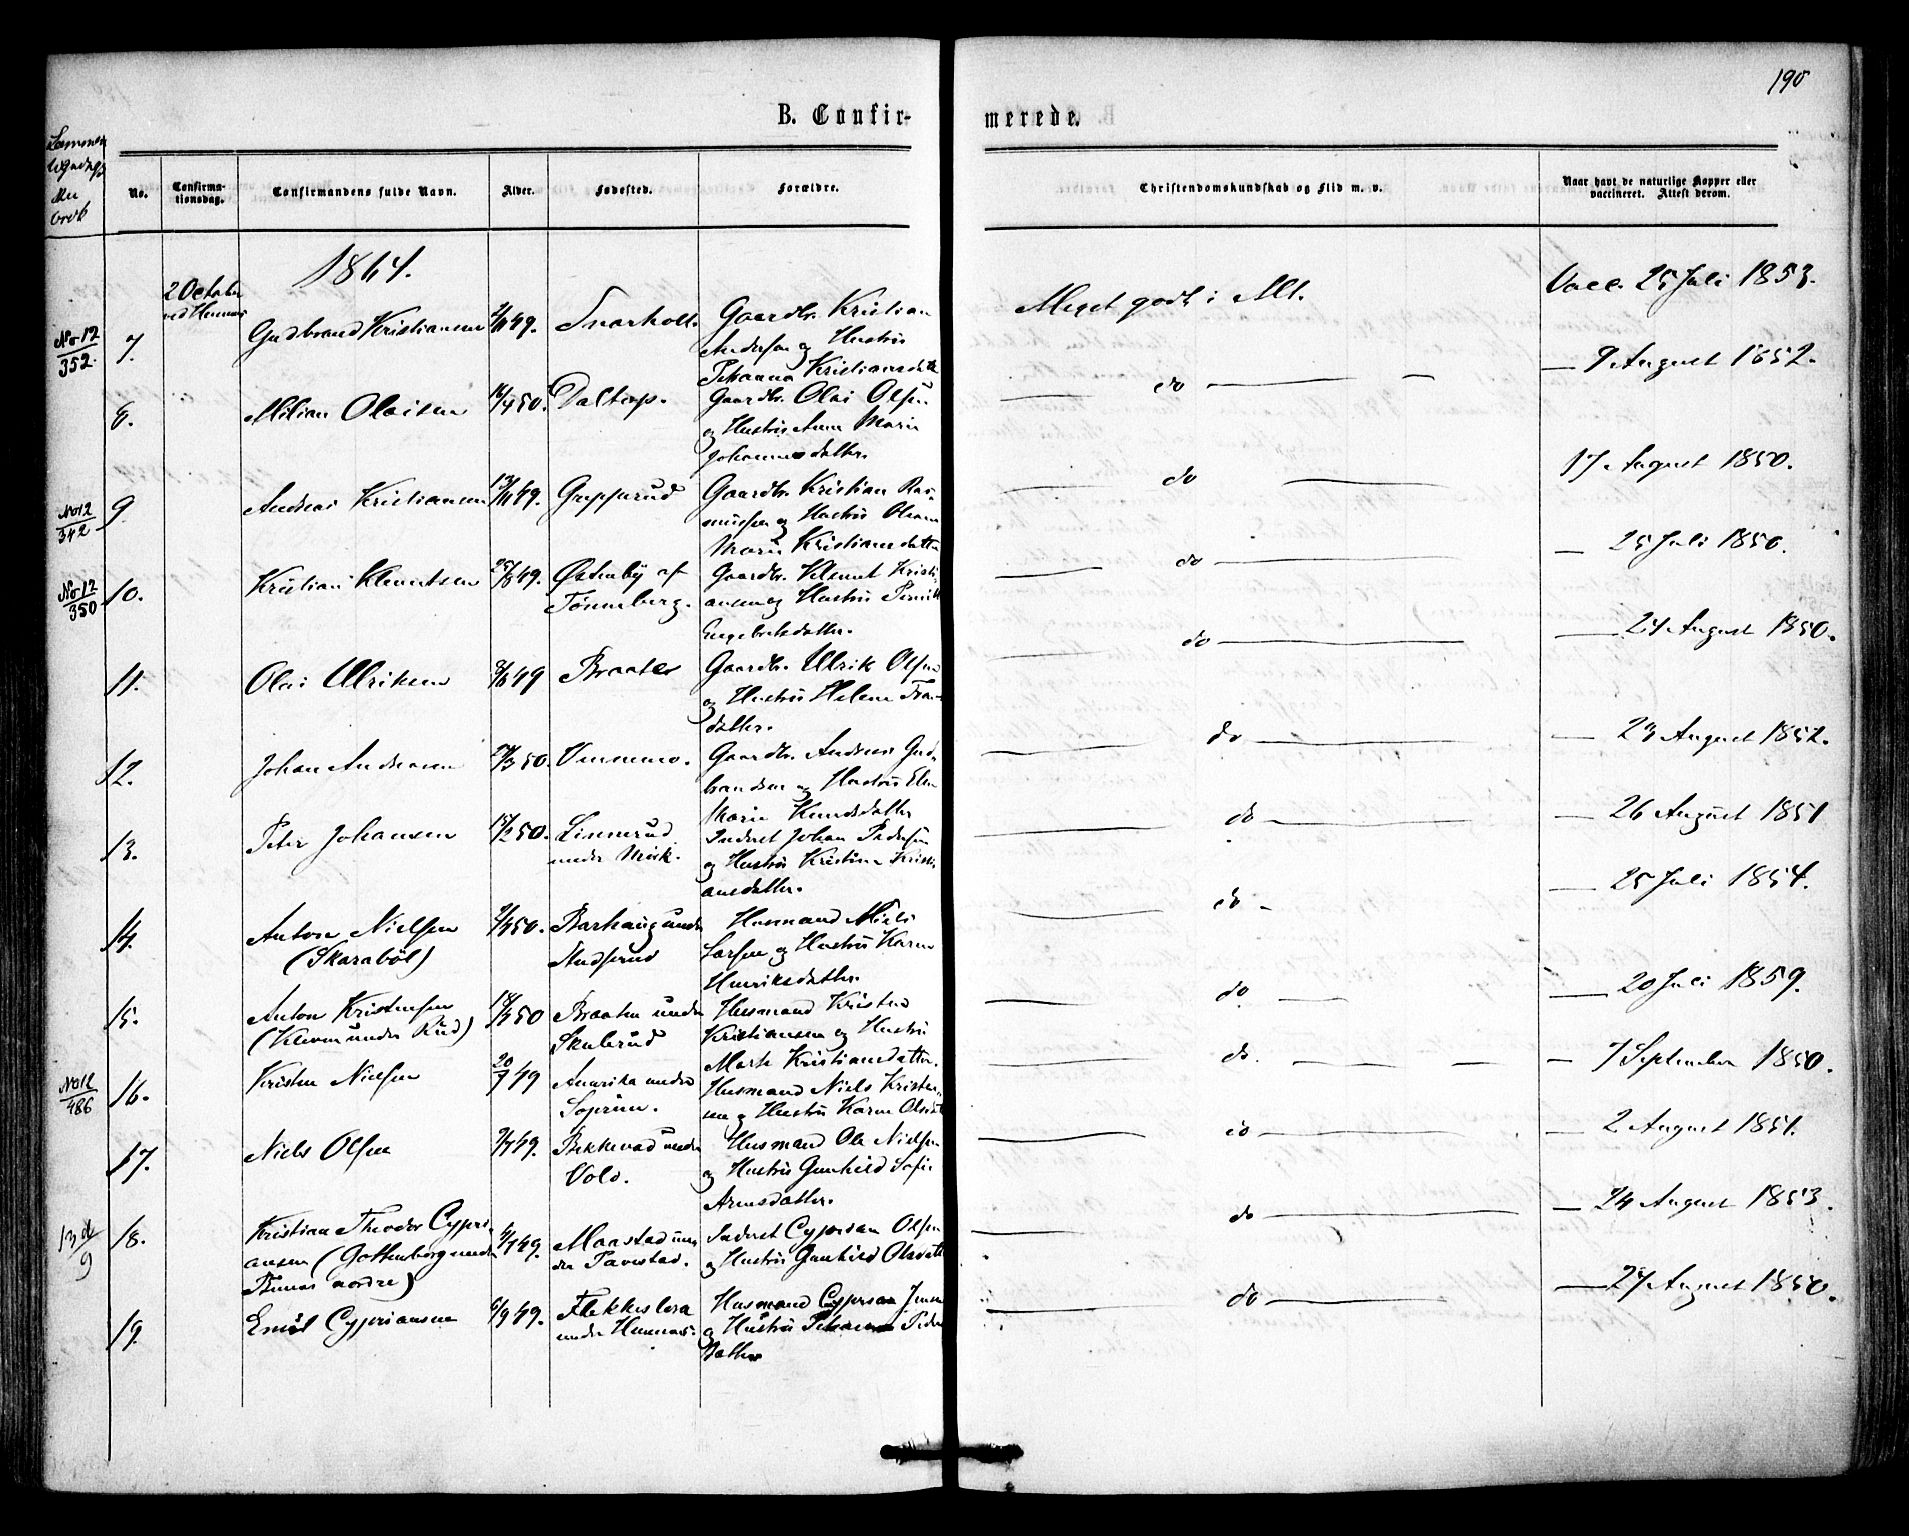 190
B. Confir-
merede.
No.
Confirma-
tionsdag.
Confirmandens fulde Navn.
Alder.
Fødested.
Forældre.
Christendomskundskab og Flid m. v.
Naar havt de naturlige Kopper eller
vaccineret. Attest derom.
1864.
2 October
No 12
352.
7.
Gudbrand Kristiansen
49.
Snarholt
Gaardbr. Kristian
Andersen og Hustru
Johanna Kristiansdatter
Meget godt i Alt.
Vacc. 25 Juli 1853.
8.
Milian Olaisen
16/4 50.
Daltorp.
Gaardbr. Olai Olsen
og Hustru Anne Marie
Johannesdatter.
do
— 9 August 1852.
No 12
342
9.
Andreas Kristiansen
13/11 49.
Gryppurud
Gaardbr. Kristian Ras-
mussen og Hustru
Marie Kristiansdatter
do
17 August 1850.
No 12
350
10.
Kristian Klemetsen
25/8 49.
Østenby af
Tønneberg.
Gaardbr. Klemet Kristi-
ansen og Hustru
Engebretsdatter.
do
— 25 Juli 1850.
11.
Olai Ulriksen
49
Braaten
Gaardbr. Ulrik Olsen
og Hustru Helene
datter.
do
— 24 August 1850.
12.
Johan Andreasen
27/3 50.
Vemmino.
Gaardbr. Andreas Gud-
brandsen og Hustru Elen
Marie Knudsdatter
do
— 23 August 1852.
13.
Peter Johansen
15/2 50.
Linnerud
under Mørk.
Inderst Johan Pedersen
og Hustru Kristine Kristi
ansdatter.
do
— 26 August 1851
14.
Anton Nielsen
(Skarabøl)
50.
Barhaug under
Husmand Niels
Larsen og Hustru Karen
Henriksdatter.
do -
— 25 Juli 1854.
15.
Anton Kristensen
(Kleven under Rud)
50
Braaten under
Skulerud
Husmand Kristen
Kristiansen og Hustru
Marte Kristiansdatter.
do
— 20 Juli 1859.
No 12
486
16.
Kristen Nielsen
20/9 49
Amerika under
Soprim.
Husmand Niels Kristen-
sen og Hustru Karen Olsdat
do.
— 7 September 1850.
17.
Niels Olsen
49.
Bekkevad under
Vold.
Husmand Ole Nielsen
og Hustru Gunhild Sofie
Arnesdatter.
do
2 August 1851.
13 d/9
18.
Kristian Theodor Cypri-
ansen (Gottenborg under
nordre)
49.
Maastad un-
der Tavestad.
Inderst Cyprian Olsen
og Hustru Gunhild Olsdatt
do
— 24 August 1853.
19.
Emil Cypriansen
6/9 49.
Flekkeslera
under Hemnæs.
Husmand Cyprian Jensen
og Hustru Johanne Peders
datter
do
— 27 August 1850.